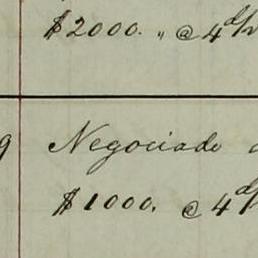 $2000. " @ 4 d/v
9 Negociado
$1000. @ 4 d/